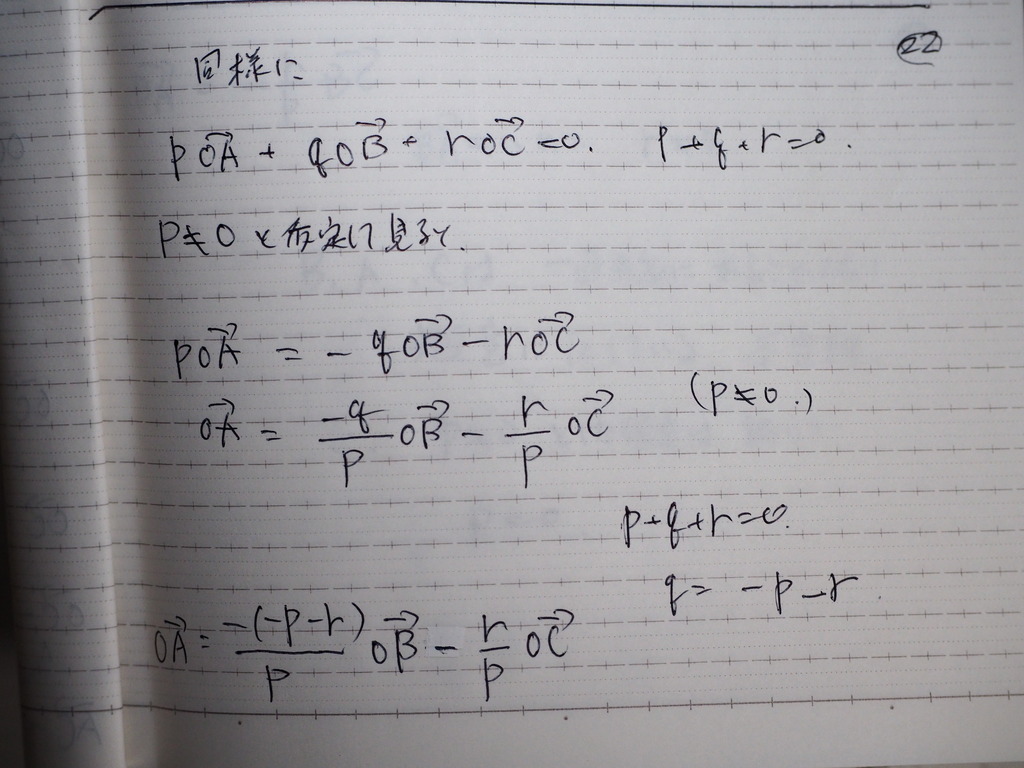 22
同様に
p\overrightarrow{OA} + q\overrightarrow{OB} + r\overrightarrow{OC} = 0. p+q+r=0.
p≠0と仮定して見ると.
p\overrightarrow{OA} = -q\overrightarrow{OB} - r\overrightarrow{OC}
\overrightarrow{OA} = \frac{-q}{p}\overrightarrow{OB} - \frac{r}{p}\overrightarrow{OC} (p≠0.)
p+q+r=0.
q = -p-r.
\overrightarrow{OA} = \frac{-(-p-r)}{p}\overrightarrow{OB} - \frac{r}{p}\overrightarrow{OC}